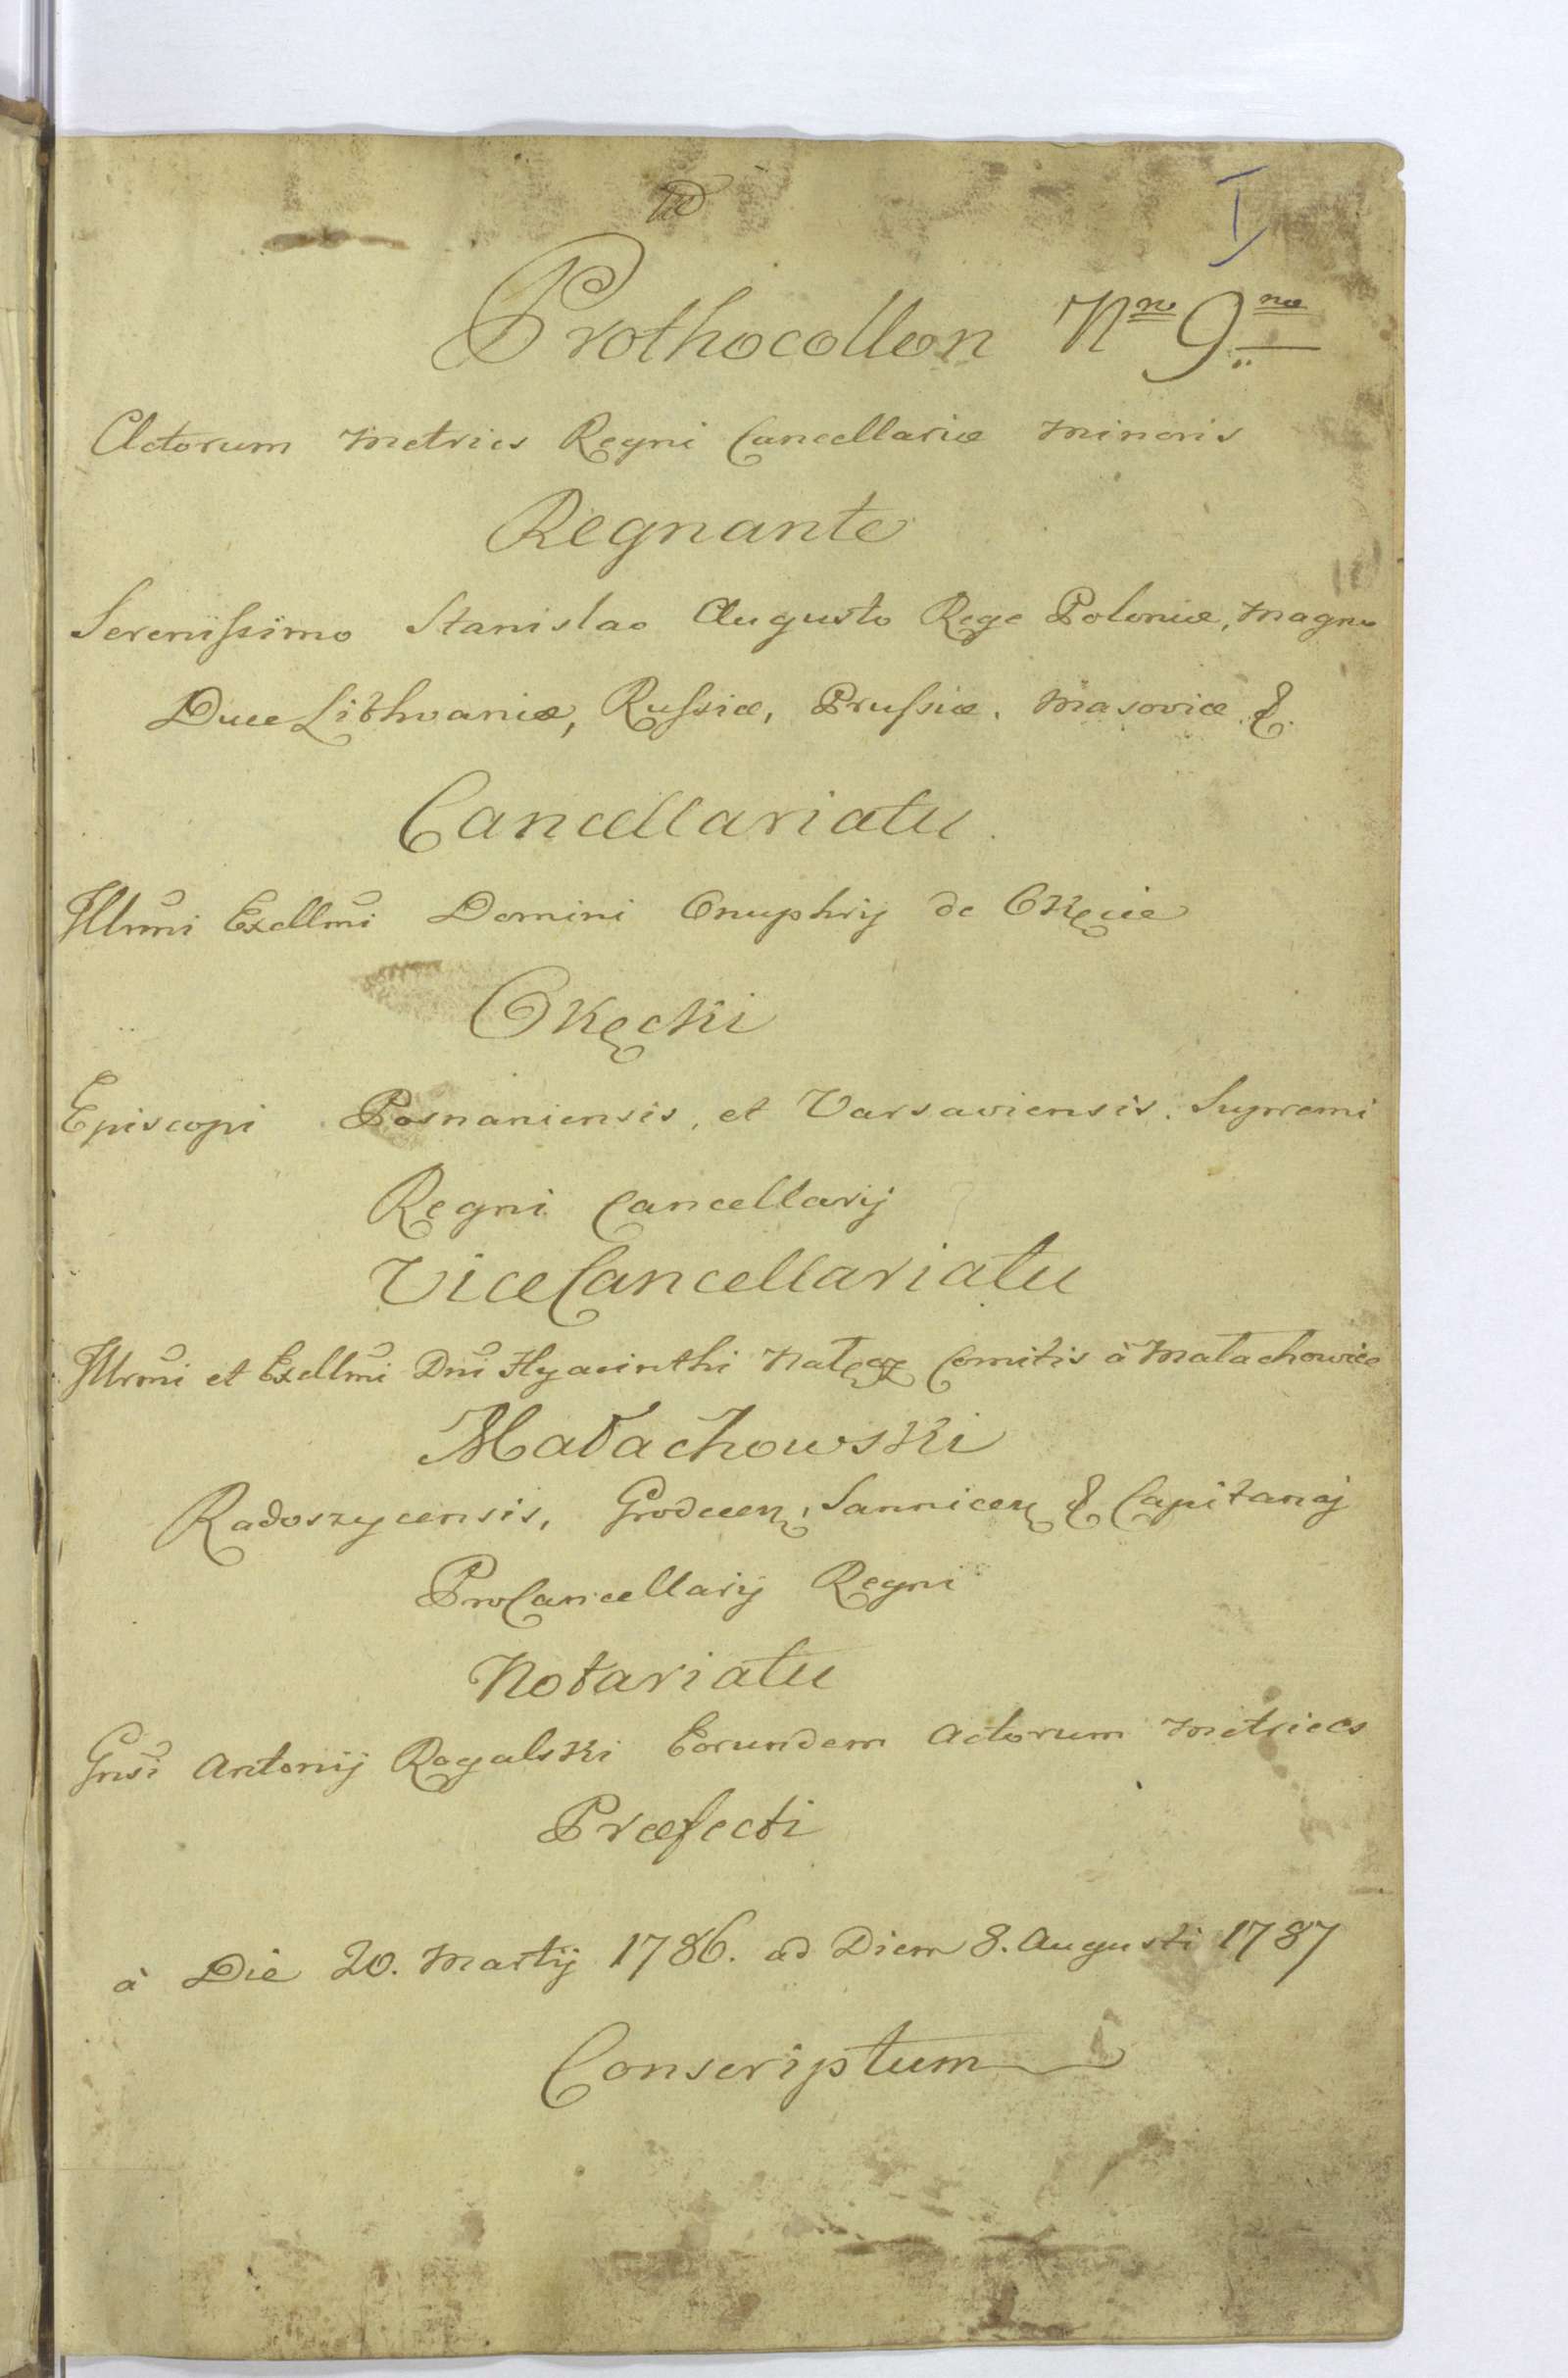 I
Prothocollon Nro 9no
Actorum Metrices Regni Cancellariæ Minoris
Regnante
Serenissimo Stanislao Augusto Rege Poloniæ, Magno
Duce Lithvaniæ, Russiæ, Prussiæ, Masoviæ &.
Cancellariatu
Illrmi Exellmi Domini Onuphrij de Okęcie
Okęcki
Episcopi Posnaniensis, et Varsaviensis. Supremi
Regni Cancellarij
ViceCancellariatu
Illrmi et Exellmi Dni Hyacinthi Nałęcz Comitis à Małachowice
Małachowski
Radoszycensis, Grodecen, Sannicen & Capitanej
ProCancellarij Regni
Notariatu
Gnsi Antonij Rogalski Eorundem Actorum Metrices
Præfecti
à Die 20. Martij 1786. ad Diem 8. Augusti 1787
Conscriptum